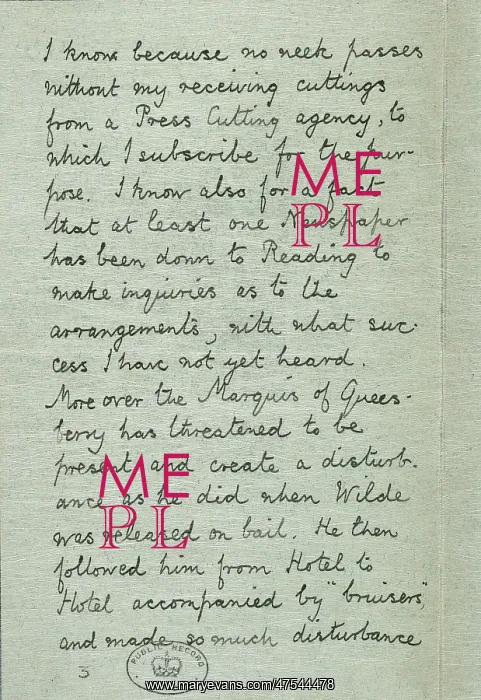 I know because no week passes
without my receiving cuttings
from a Press Cutting agency, to
which I subscribe for the pur-
pose. I know also for a fact
that at least one Newspaper
has been down to Reading to
make inquiries as to the
arrangements, with what suc-
cess I have not yet heard.
More over the Marquis of Quees-
berry has threatened to be
present and create a disturb-
ance as he did when Wilde
was released on bail. He then
followed him from Hotel to
Hotel accompanied by "bruisers",
and made so much disturbance
3
PUBLIC RECORD
ME
PL
ME
PL
www.maryevans.com/47544478